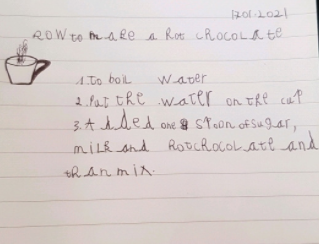 1201.2021
ROW to make a Rot cRocolate
1. To boil water
2. Put the water on the cup
3. Added one spoon of sugar,
milk and RotcRocolate and
than mix.